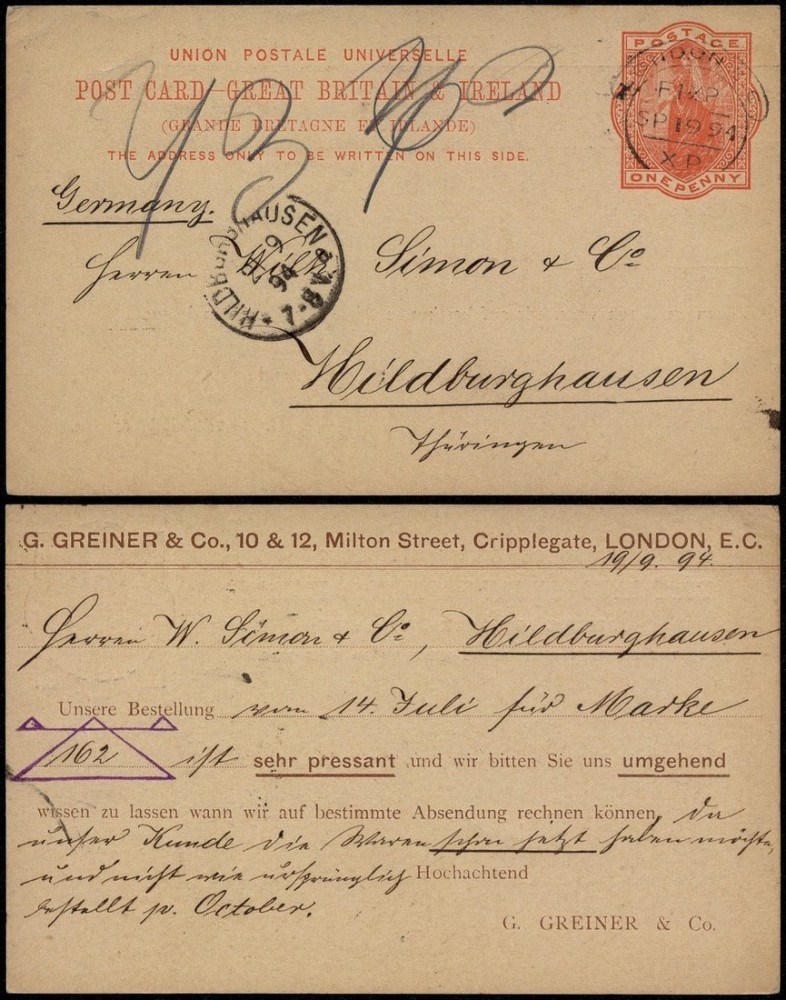 UNION POSTALE UNIVERSELLE
POST CARD—GREAT BRITAIN & IRELAND
(GRANDE BRETAGNE ET IRLANDE)
THE ADDRESS ONLY TO BE WRITTEN ON THIS SIDE.
POSTAGE
ONE PENNY
SP 19 94
X P
Germany.
HILDBURGHAUSEN
9
94
7-8 V
Herren Wilh. Simon & Co
Hildburghausen
Thüringen
G. GREINER & Co., 10 & 12, Milton Street, Cripplegate, LONDON, E.C.
19/9. 94.
Herren W. Simon & Co, Hildburghausen
Unsere Bestellung vom 14. Juli für Marke
162 ist sehr pressant und wir bitten Sie uns umgehend
wissen zu lassen wann wir auf bestimmte Absendung rechnen können, da
unser Kunde die Waren schon jetzt haben möchte,
und nicht wie ursprünglich Hochachtend
bestellt p. October.
G. GREINER & Co.